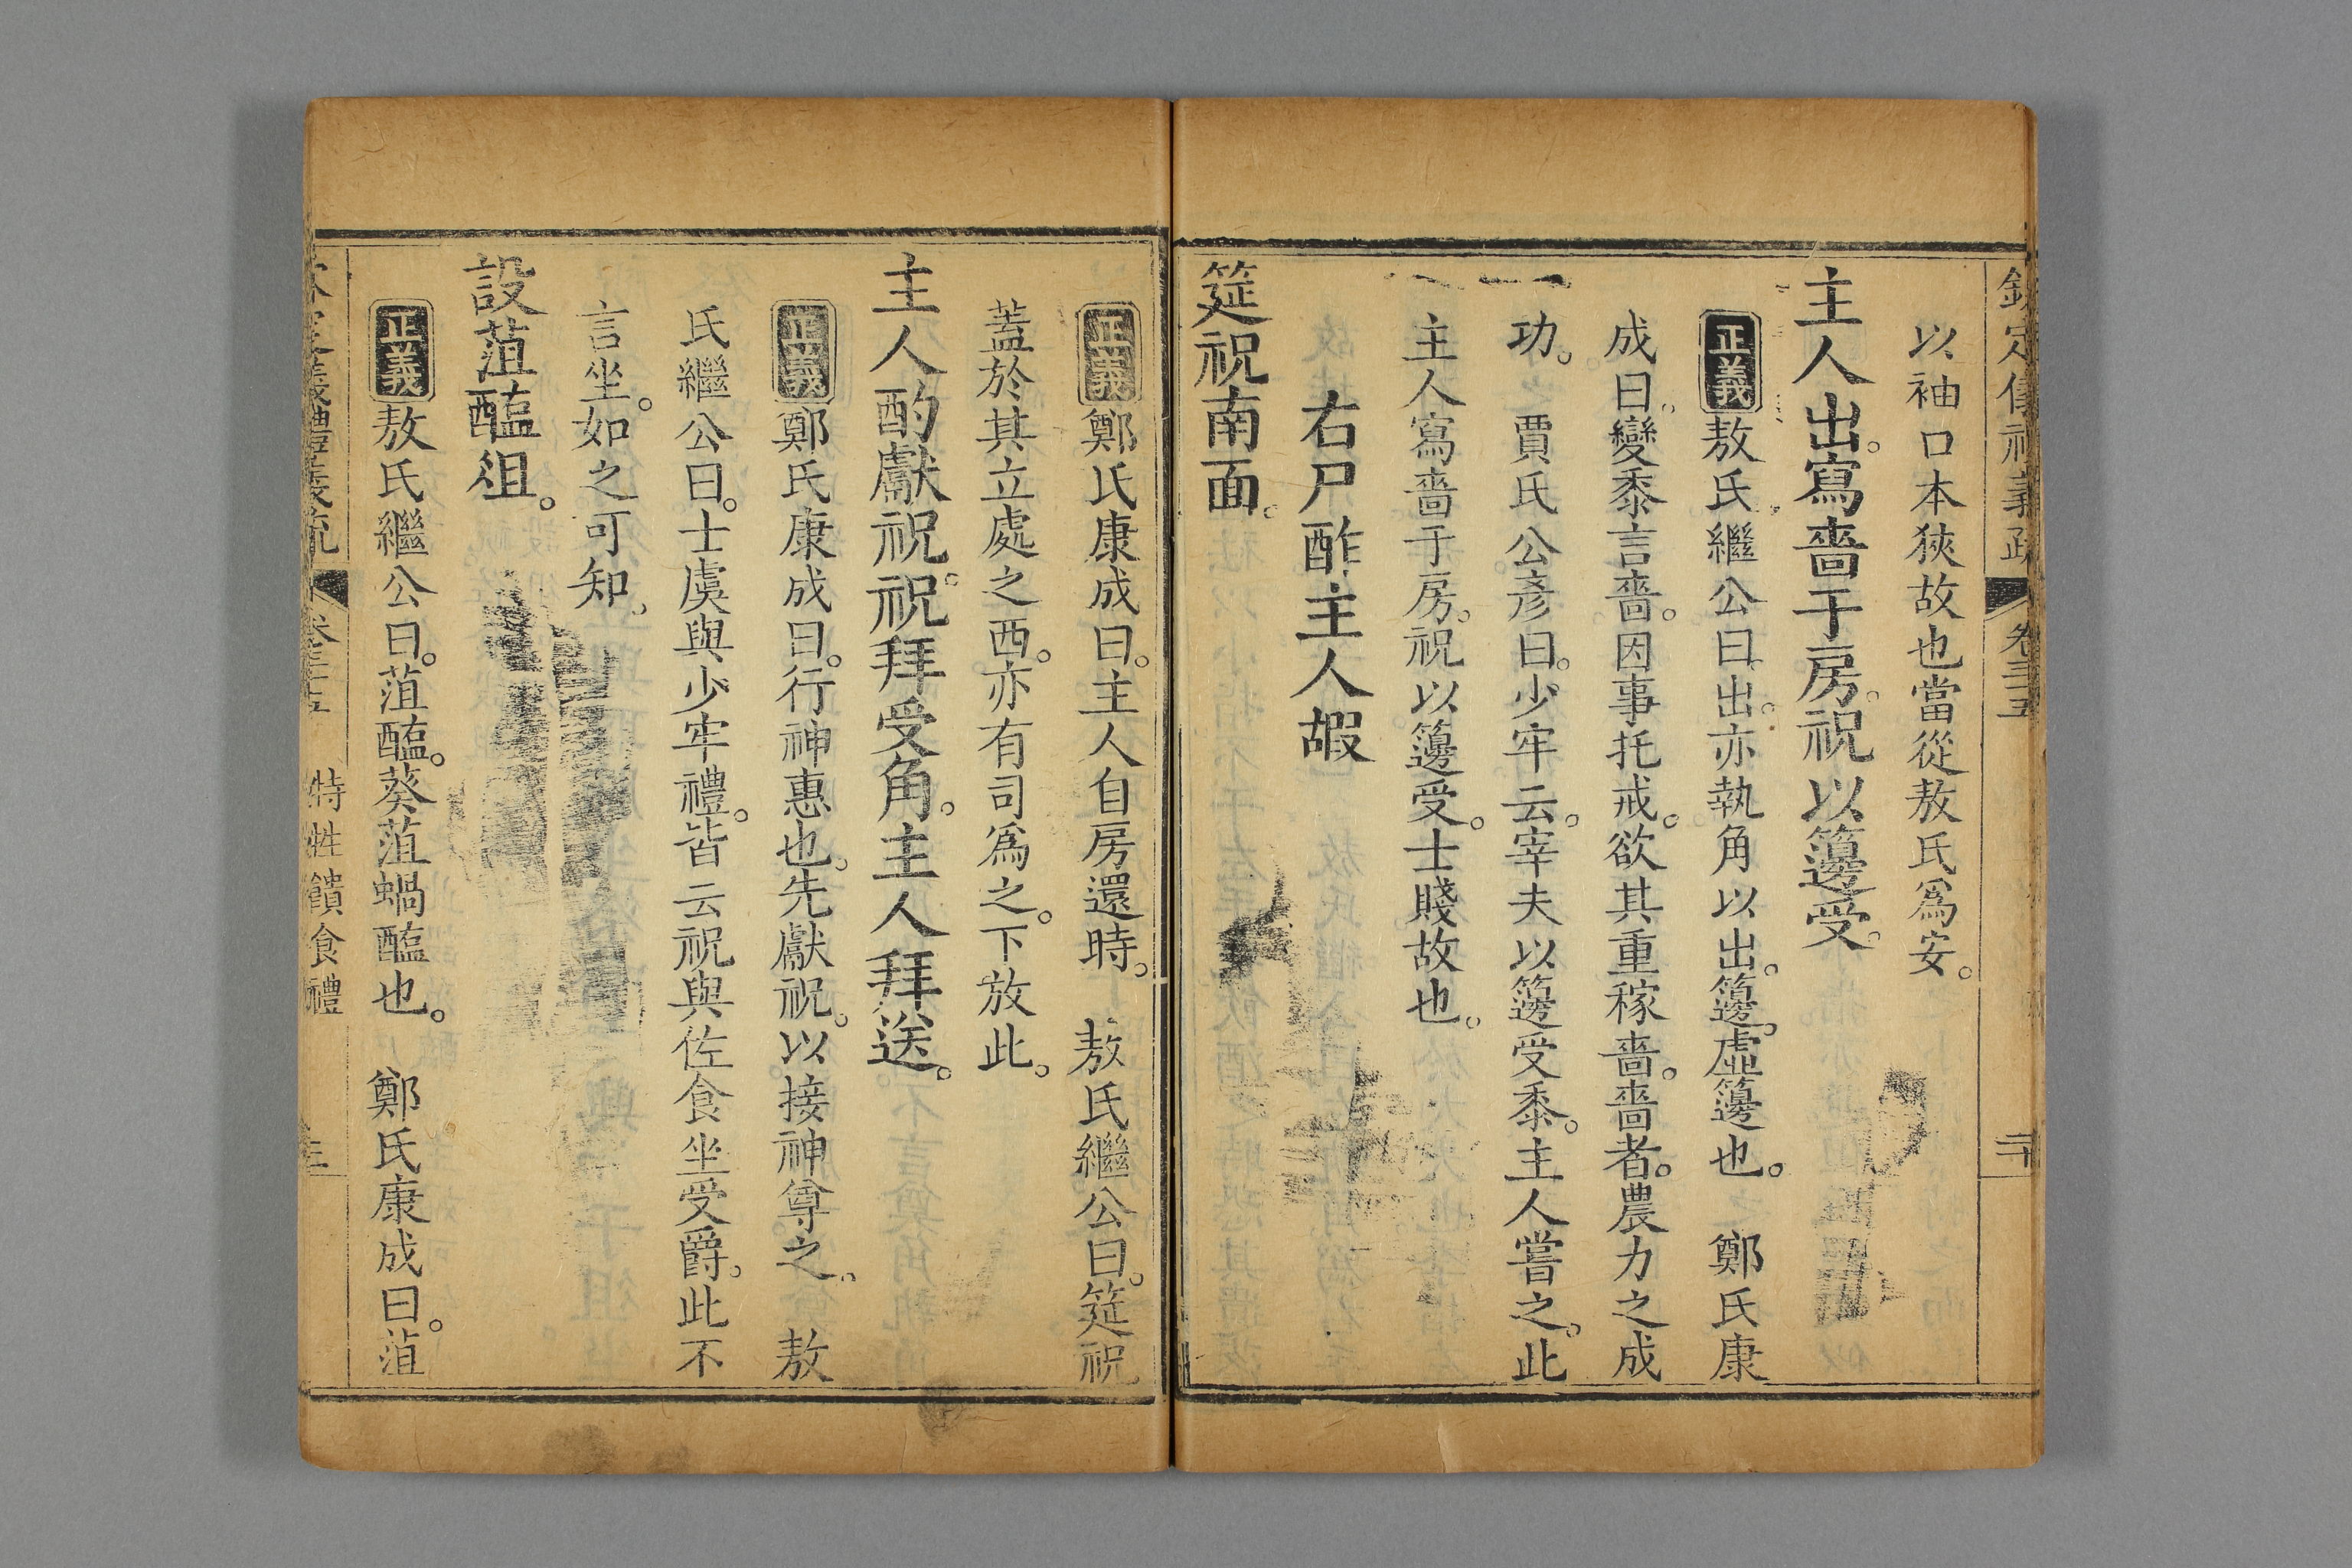 欽定儀禮義疏 卷三十五 二十
以袖口本狹故也當從敖氏為安。
主人出。寫嗇于房。祝以籩受。
正義 敖氏繼公曰。出。亦執角以出。籩。虛籩也。 鄭氏康
成曰。變黍言嗇。因事托戒。欲其重稼嗇。嗇者。農力之成
功。 賈氏公彥曰。少牢云。宰夫以籩受黍。主人嘗之。此
主人寫嗇于房。祝以籩受。士賤故也。
右尸酢主人嘏
筵祝南面。
正義 鄭氏康成曰。主人自房還時。 敖氏繼公曰。筵祝
蓋於其立處之西。亦有司為之。下放此。
主人酌獻祝。祝拜受角。主人拜送。
正義 鄭氏康成曰。行神惠也。先獻祝。以接神尊之。 敖
氏繼公曰。士虞與少牢禮。皆云祝與佐食坐受爵。此不
言坐。如之可知。
設菹醢俎。
正義 敖氏繼公曰。菹醢。葵菹蝸醢也。 鄭氏康成曰。菹
特牲饋食禮